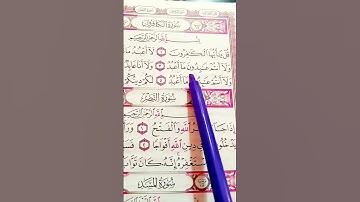 سُورَةُ الْكَافِرُونَ
بِسْمِ اللَّهِ الرَّحْمَٰنِ الرَّحِيمِ
قُلْ يَا أَيُّهَا الْكَافِرُونَ ١ لَا أَعْبُدُ مَا
وَلَا أَنْتُمْ عَابِدُونَ مَا أَعْبُدُ ٣ وَلَا أَنَا عَابِدٌ
وَلَا أَنْتُمْ عَابِدُونَ مَا أَعْبُدُ ٥ لَكُمْ دِينُكُمْ
سُورَةُ النَّصْرِ
إِذَا جَاءَ نَصْرُ اللَّهِ وَالْفَتْحُ ١ وَرَأَ
فِي دِينِ اللَّهِ أَفْوَاجًا ٢ فَسَ
إِنَّهُ كَانَ تَوَّابًا
سُورَةُ الْمَسَدِ